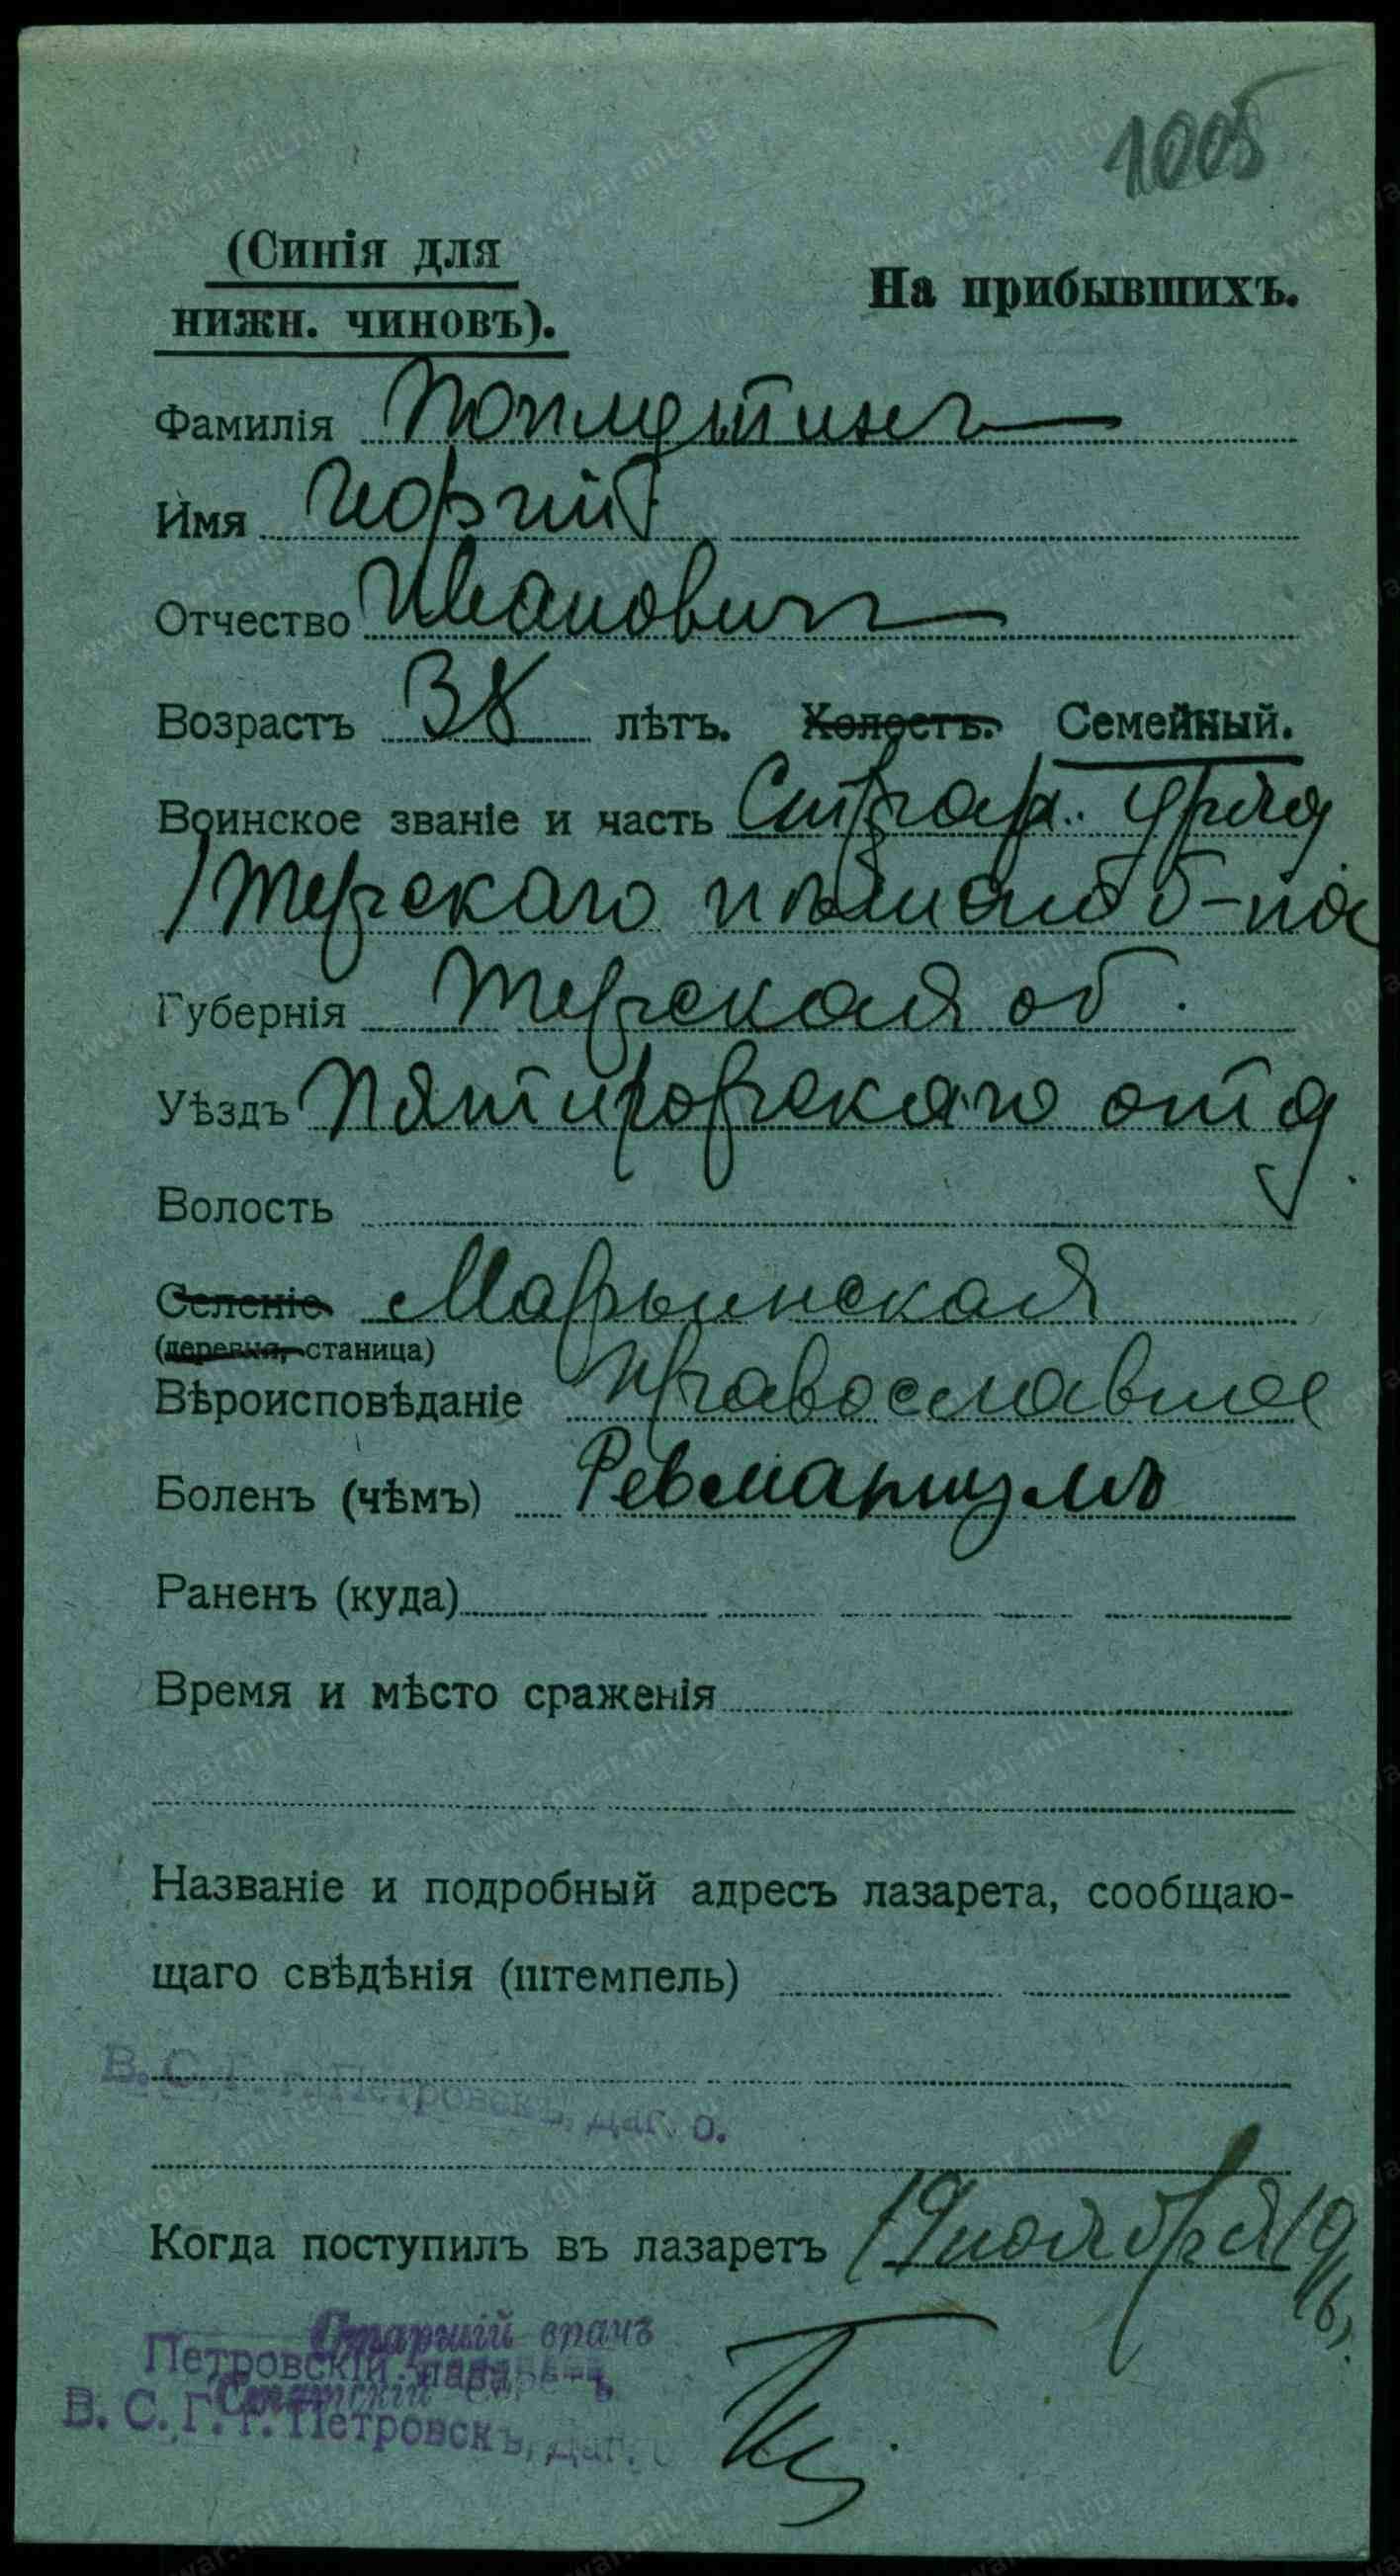 1005
(Синія для
нижн. чиновъ).
На прибывшихъ.
Фамилія
Имя Георгій
Отчество Ивановичъ
Возрастъ 38 лѣтъ. Холостъ. Семейный.
Воинское званіе и часть Старш. уряд.
Терскаго 5-го
Губернія Терская об.
Уѣздъ Пятигорскаго отд.
Волость
Селеніе Марьинская
(деревня, станица)
Вѣроисповѣданіе Православное
Боленъ (чѣмъ) Ревматизмъ
Раненъ (куда)
Время и мѣсто сраженія
Названіе и подробный адресъ лазарета, сообщаю-
щаго свѣдѣнія (штемпель)
В. С. Г. г. Петровскъ, Даг. о.
Когда поступилъ въ лазаретъ 19 ноября 1916
Старшій врачъ
Петровскій лазаретъ
В. С. Г. г. Петровскъ, Даг.